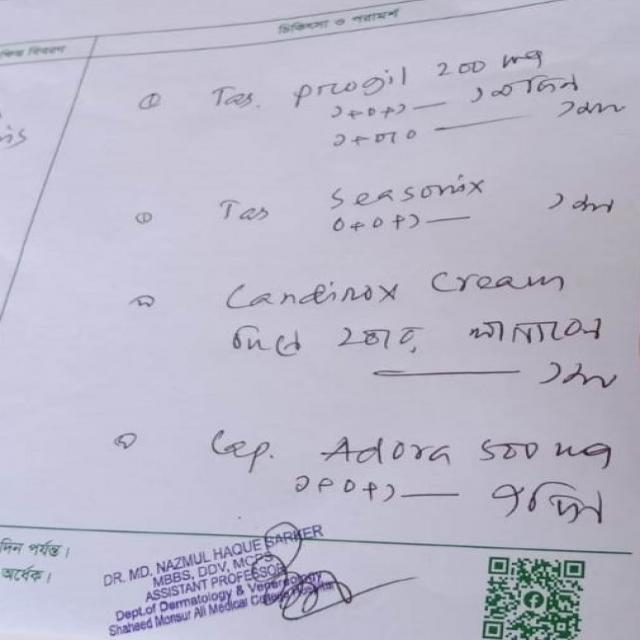 চিকিৎসা ও পরামর্শ
বিবরণ
① Tab. Progil 200 mg
১+০+১ — ১০ দিন
১+০+০ — ১মাস
① Tab Seasonix
০+০+১ — ১মাস
Candinox Cream
দিনে ২বার, লাগাবেন
— ১মাস
Cap. Adora 500 mg
১+০+১ — ৭দিন
দিন পর্যন্ত।
অর্ধেক।
DR. MD. NAZMUL HAQUE SARKER
MBBS, DDV, MCPS
ASSISTANT PROFESSOR
Dept.of Dermatology & Venereology
Shaheed Monsur Ali Medical College